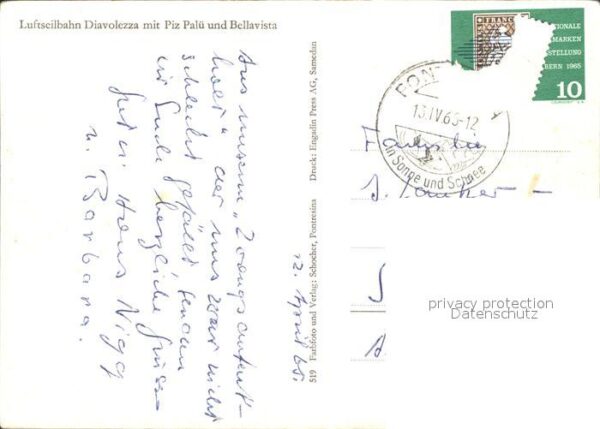 Luftseilbahn Diavolezza mit Piz Palü und Bellavista
Aus unserem „Zwangsaufent-
halt“ der uns zwar nicht
schlecht gefällt senden
wir Euch herzliche Grüsse
Gerti Hans
u. Barbara.
12. April 65.
519 Farbfoto und Verlag: Schocher, Pontresina Druck: Engadin Press AG, Samedan
FRANCO
NATIONALE
MARKEN
STELLUNG
BERN 1965
10
PONT
13.IV.65-12
in Sonne und Schnee
Familie
J.
privacy protection
Datenschutz